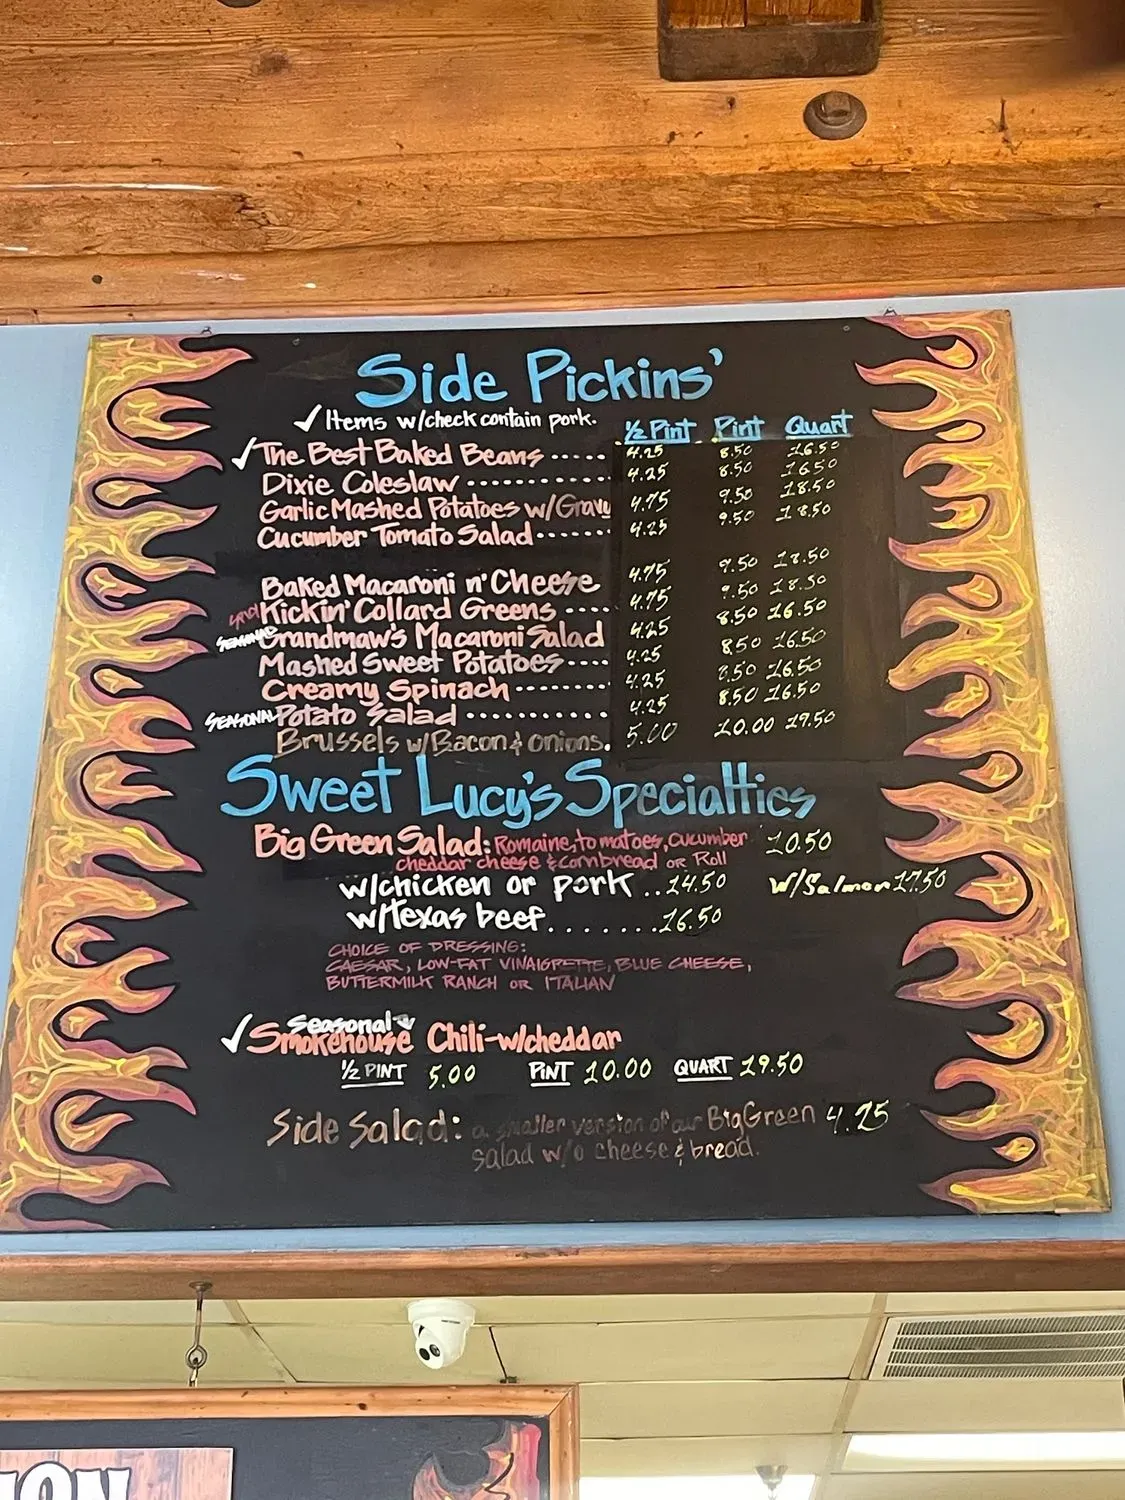 Side Pickins'
✓Items w/check contain pork.
½ Pint Pint Quart
✓The Best Baked Beans ..... 4.25 8.50 16.50
Dixie Coleslaw .............. 4.25 8.50 16.50
Garlic Mashed Potatoes w/Gravy 4.75 9.50 18.50
Cucumber Tomato Salad....... 4.25 9.50 18.50
Baked Macaroni n' Cheese 4.75 9.50 18.50
Kickin' Collard Greens .... 4.75 9.50 18.50
SEASONAL Grandmaw's Macaroni Salad 4.25 8.50 16.50
Mashed Sweet Potatoes.... 4.25 8.50 16.50
Creamy Spinach .......... 4.25 8.50 16.50
SEASONAL Potato Salad ............. 4.25 8.50 16.50
Brussels w/Bacon & onions. 5.00 10.00 19.50
Sweet Lucy's Specialties
Big Green Salad: Romaine, tomatoes, cucumber 10.50
cheddar cheese & cornbread or Roll
w/chicken or pork .. 14.50 w/Salmon 17.50
w/Texas beef.......16.50
CHOICE OF DRESSING:
CAESAR, LOW-FAT VINAIGRETTE, BLUE CHEESE,
BUTTERMILK RANCH OR ITALIAN
Seasonal
✓Smokehouse Chili-w/cheddar
½ PINT 5.00 PINT 10.00 QUART 19.50
Side Salad: a smaller version of our Big Green 4.25
salad w/o cheese & bread.